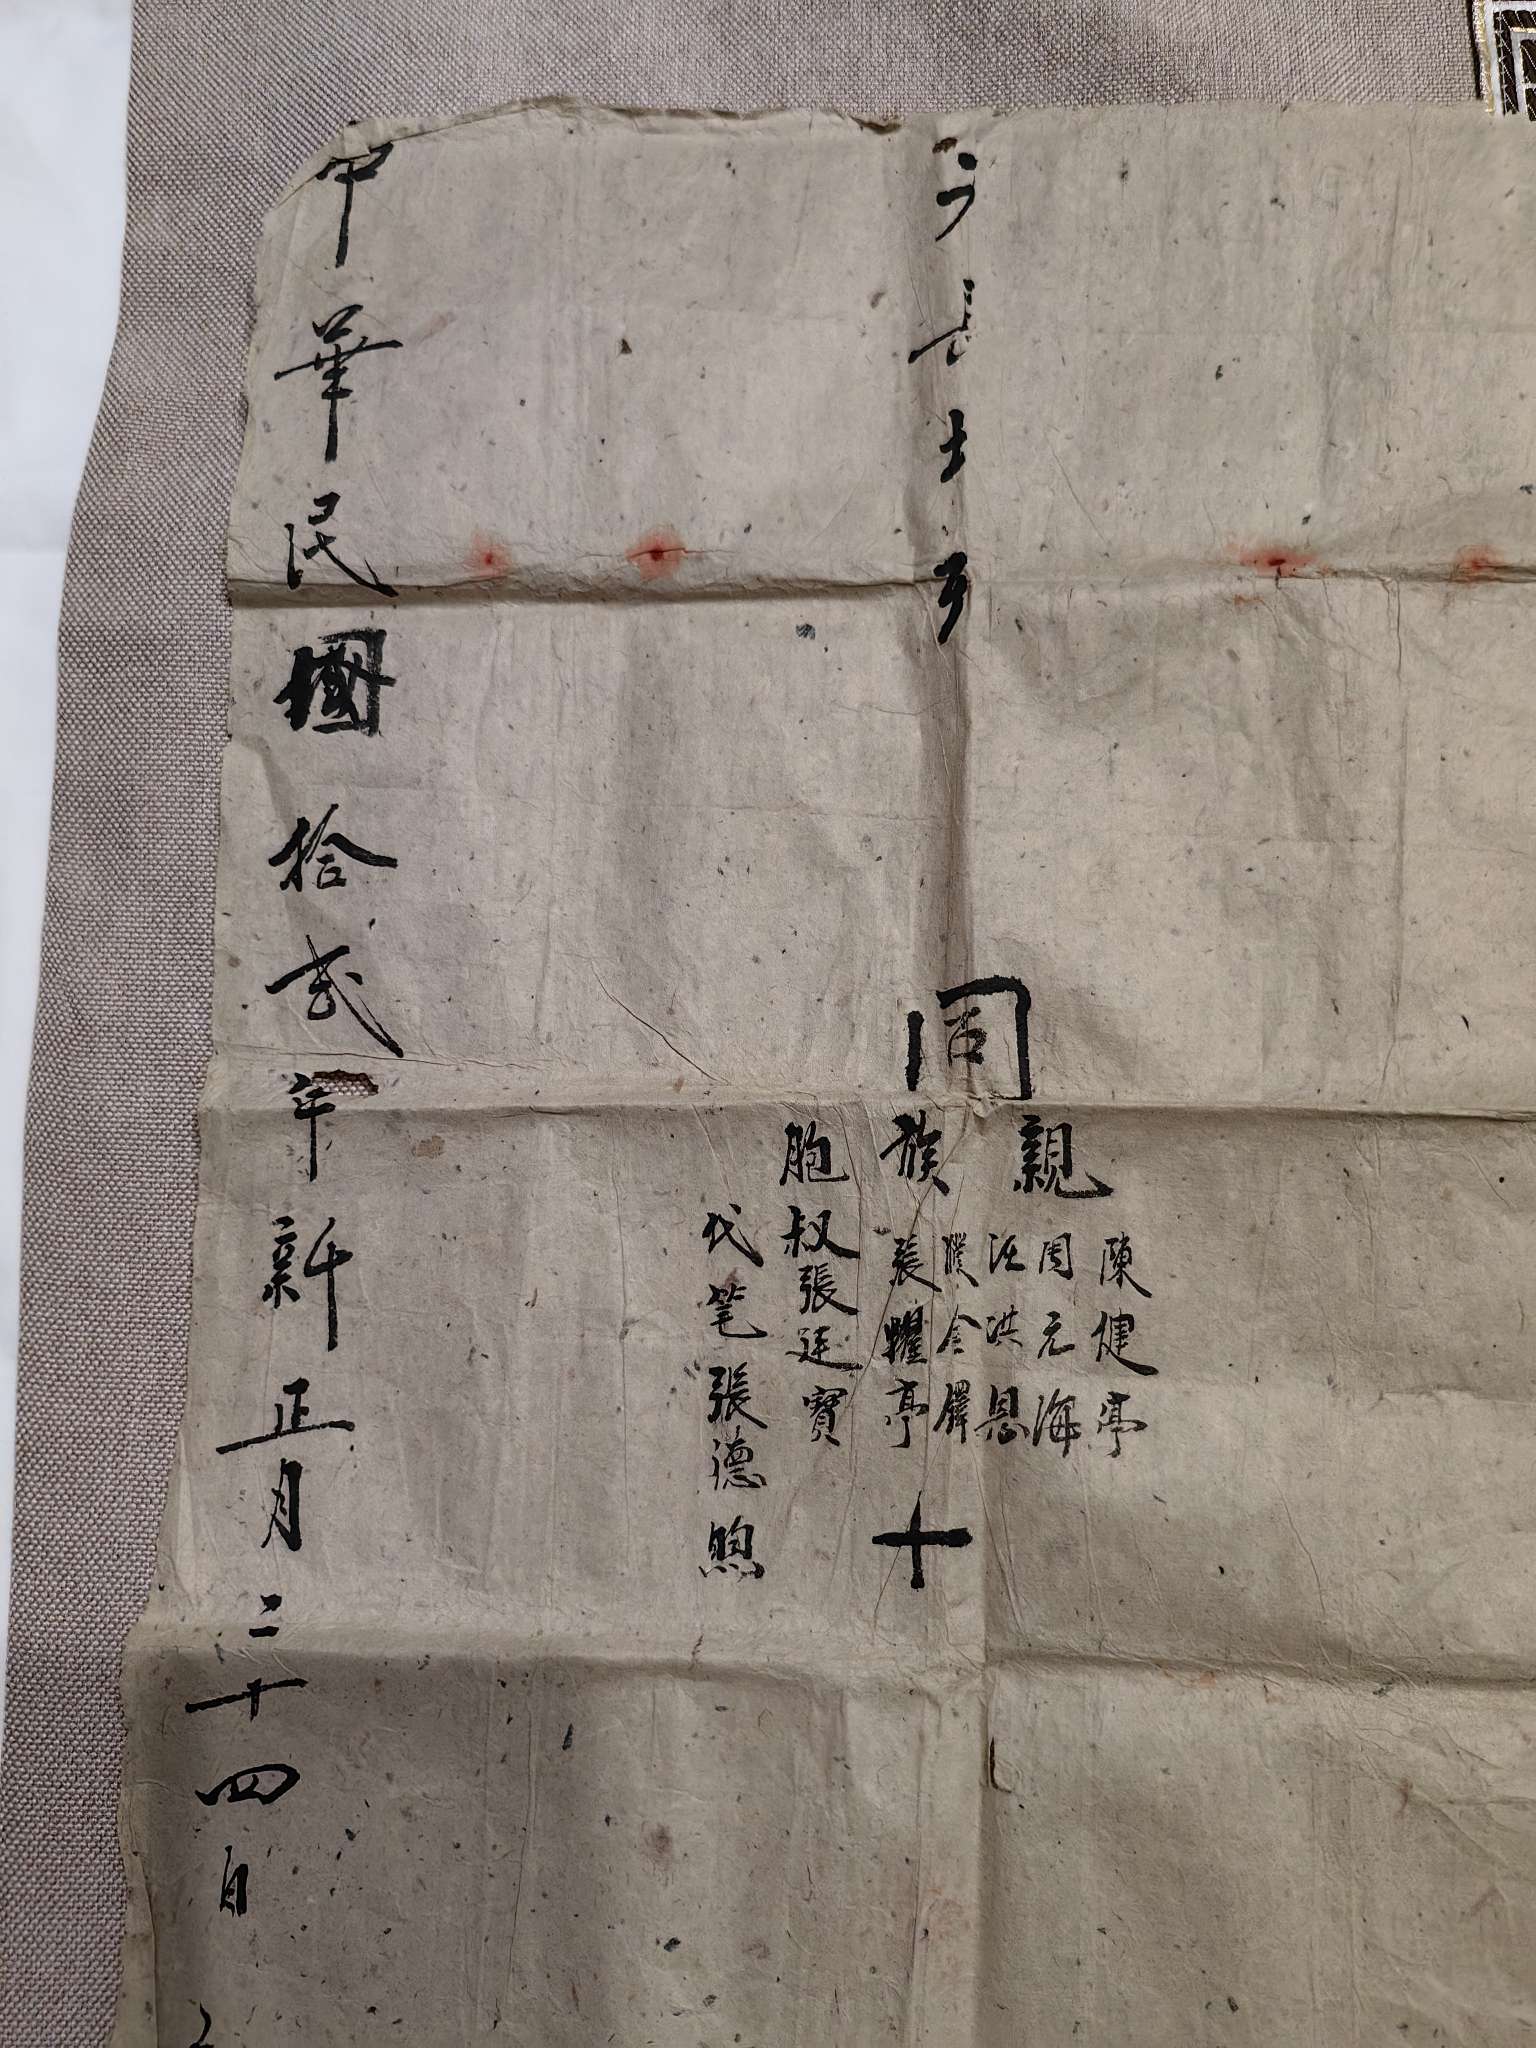 同
親
陳健亭
周元海
汪洪恩
濮金鐸
族
張耀亭
十
胞叔張廷寶
代笔張德煦
中華民國拾弍年新正月二十四日